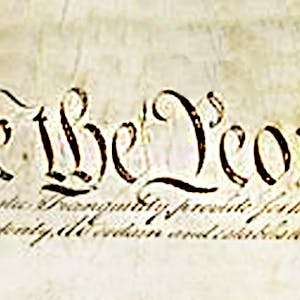 e the Peo
Tranquility, provide for
do ordain and establish